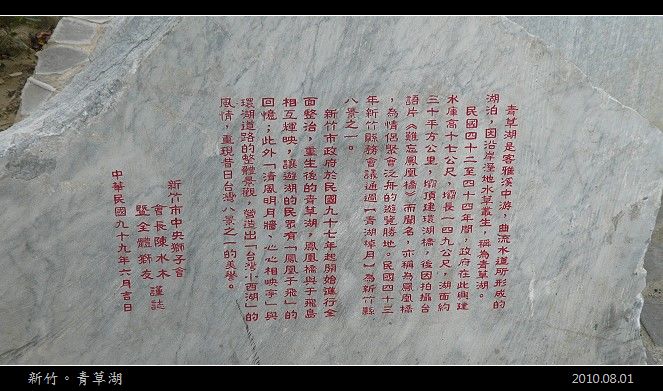 青草湖是客雅溪中游，曲流水道所形成的
湖泊，因沿岸溼地水草叢生，稱為青草湖。
民國四十二至四十四年間，政府在此興建
水庫高十七公尺，壩長一四九公尺，湖面約
三十平方公里，壩頂建環湖橋，後因拍攝台
語片《難忘鳳凰橋》而聞名，亦稱為鳳凰橋
，為情侶聚會泛舟的遊覽勝地。民國四十三
年新竹縣務會議通過「青湖掉月」為新竹縣
八景之一。
新竹市政府於民國九十七年起開始進行全
面整治，重生後的青草湖，鳳凰橋與于飛島
相互輝映，讓遊湖的民眾有「鳳凰于飛」的
回憶；此外「清風明月牆、心心相映亭」與
環湖道路的整體景觀，營造出「台灣小西湖」的
風情，重現昔日台灣八景之一的美譽。
新竹市中央獅子會
會長陳水木 謹誌
暨全體獅友
中華民國九十九年六月吉日
新竹。青草湖
2010.08.01